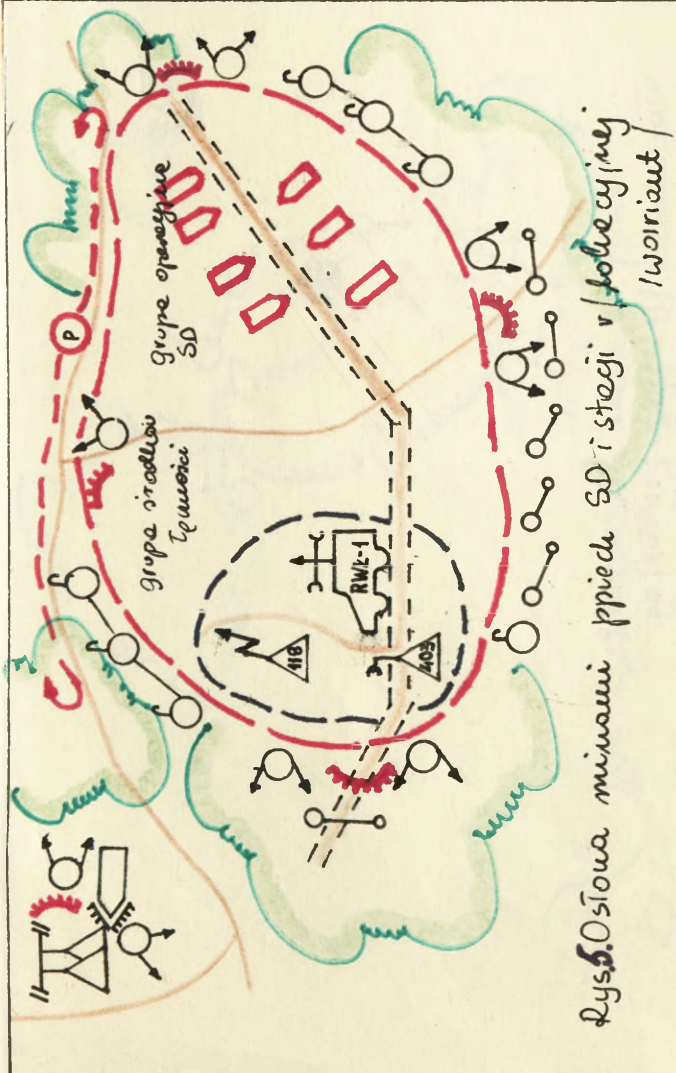 grupa operacyjna
SD
P
grupa środków
łączności
RWŁ-1
118
403
Rys.5. Osłona minami ppiech SD i stacji r/lokacyjnej
/wariant/